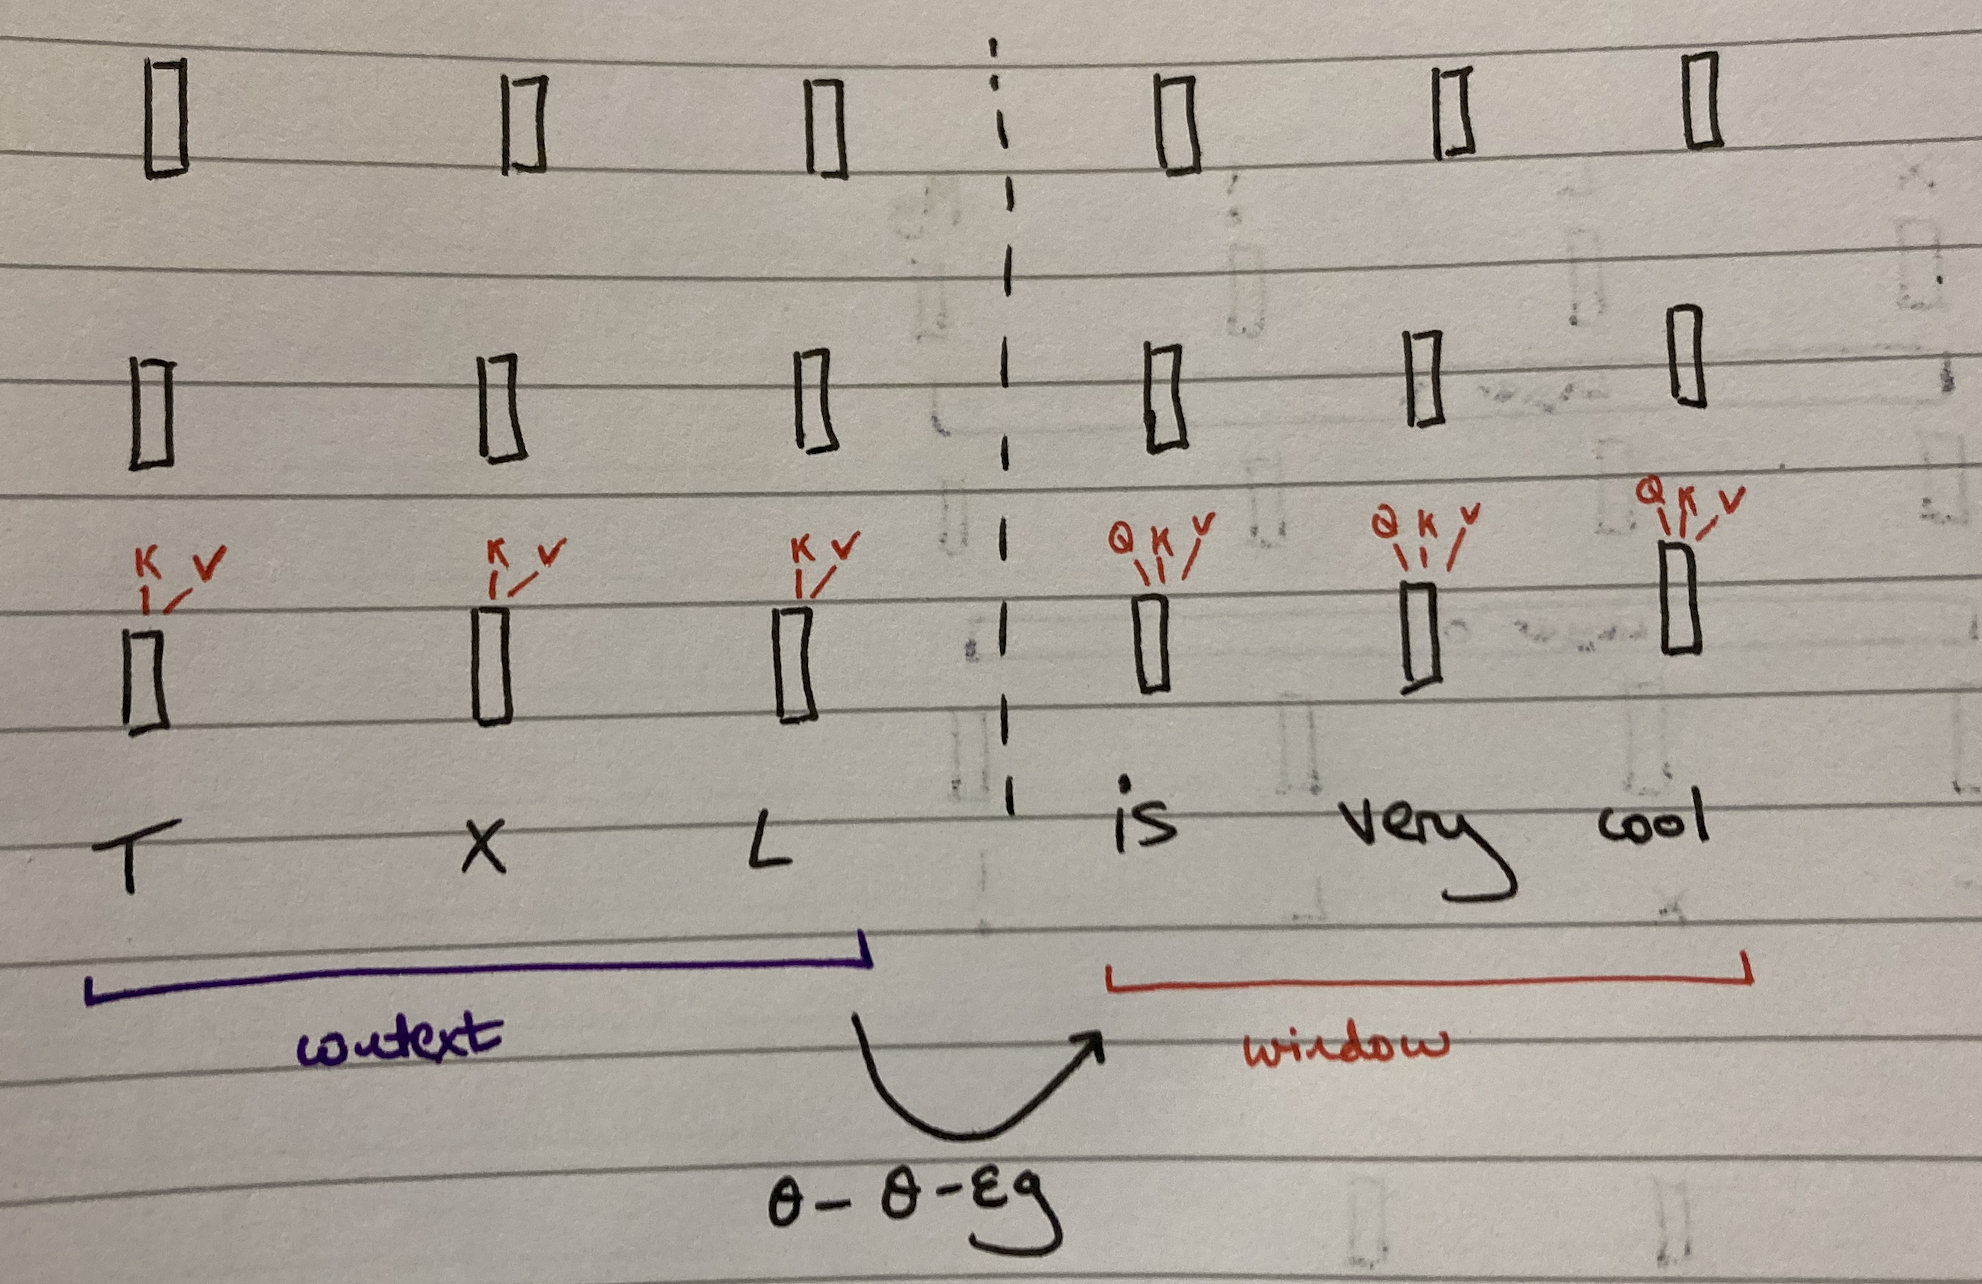 K V K V K V Q K V Q K V Q K V
T X L is very cool
context window
θ - θ - εg